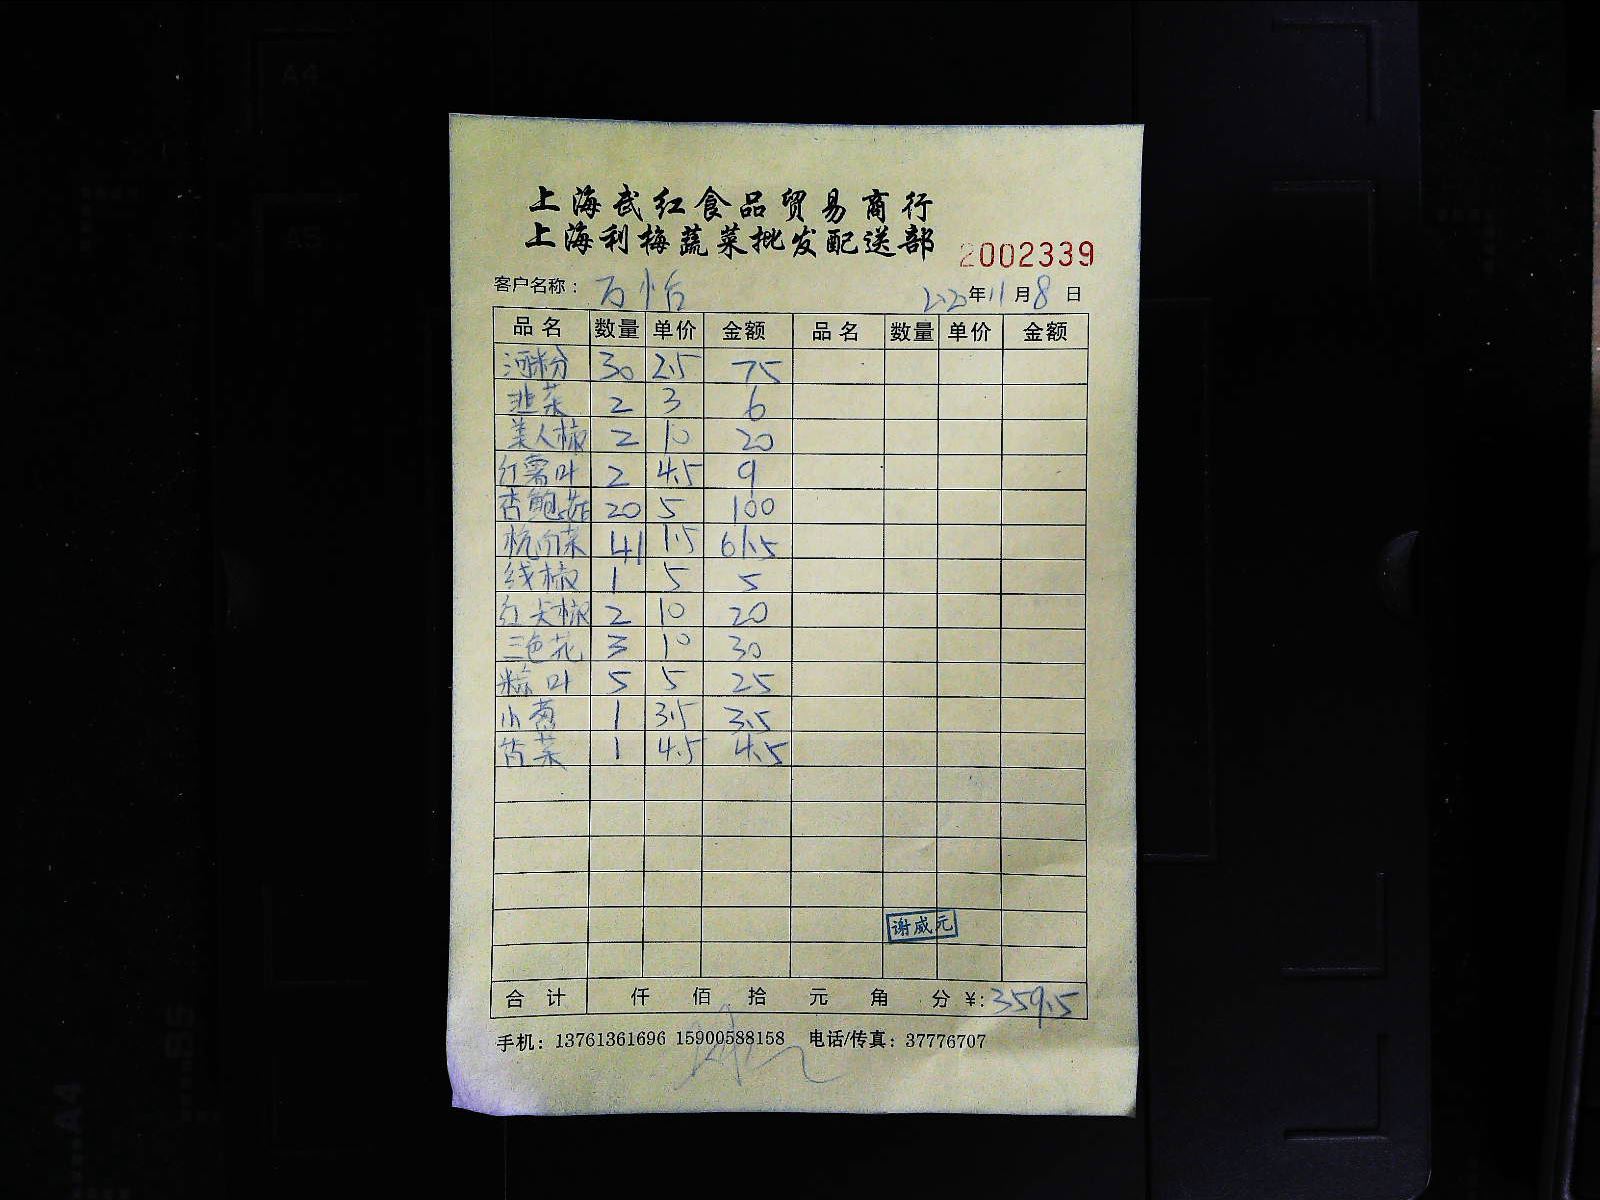 上海武红食品贸易商行
上海利梅蔬菜批发配送部 2002339
客户名称: 万怡 2022年11月8日
品名 数量 单价 金额 品名 数量 单价 金额
河粉 30 2.5 75
韭菜 2 3 6
美人椒 2 10 20
红薯叶 2 4.5 9
杏鲍菇 20 5 100
杭白菜 41 1.5 61.5
线椒 1 5 5
红尖椒 2 10 20
三色花 3 10 30
粽叶 5 5 25
小葱 1 3.5 3.5
香菜 1 4.5 4.5
谢威元
合计 仟 佰 拾 元 角 分 ¥: 359.5
手机: 13761361696 15900588158 电话/传真: 37776707
A4
A5
A4